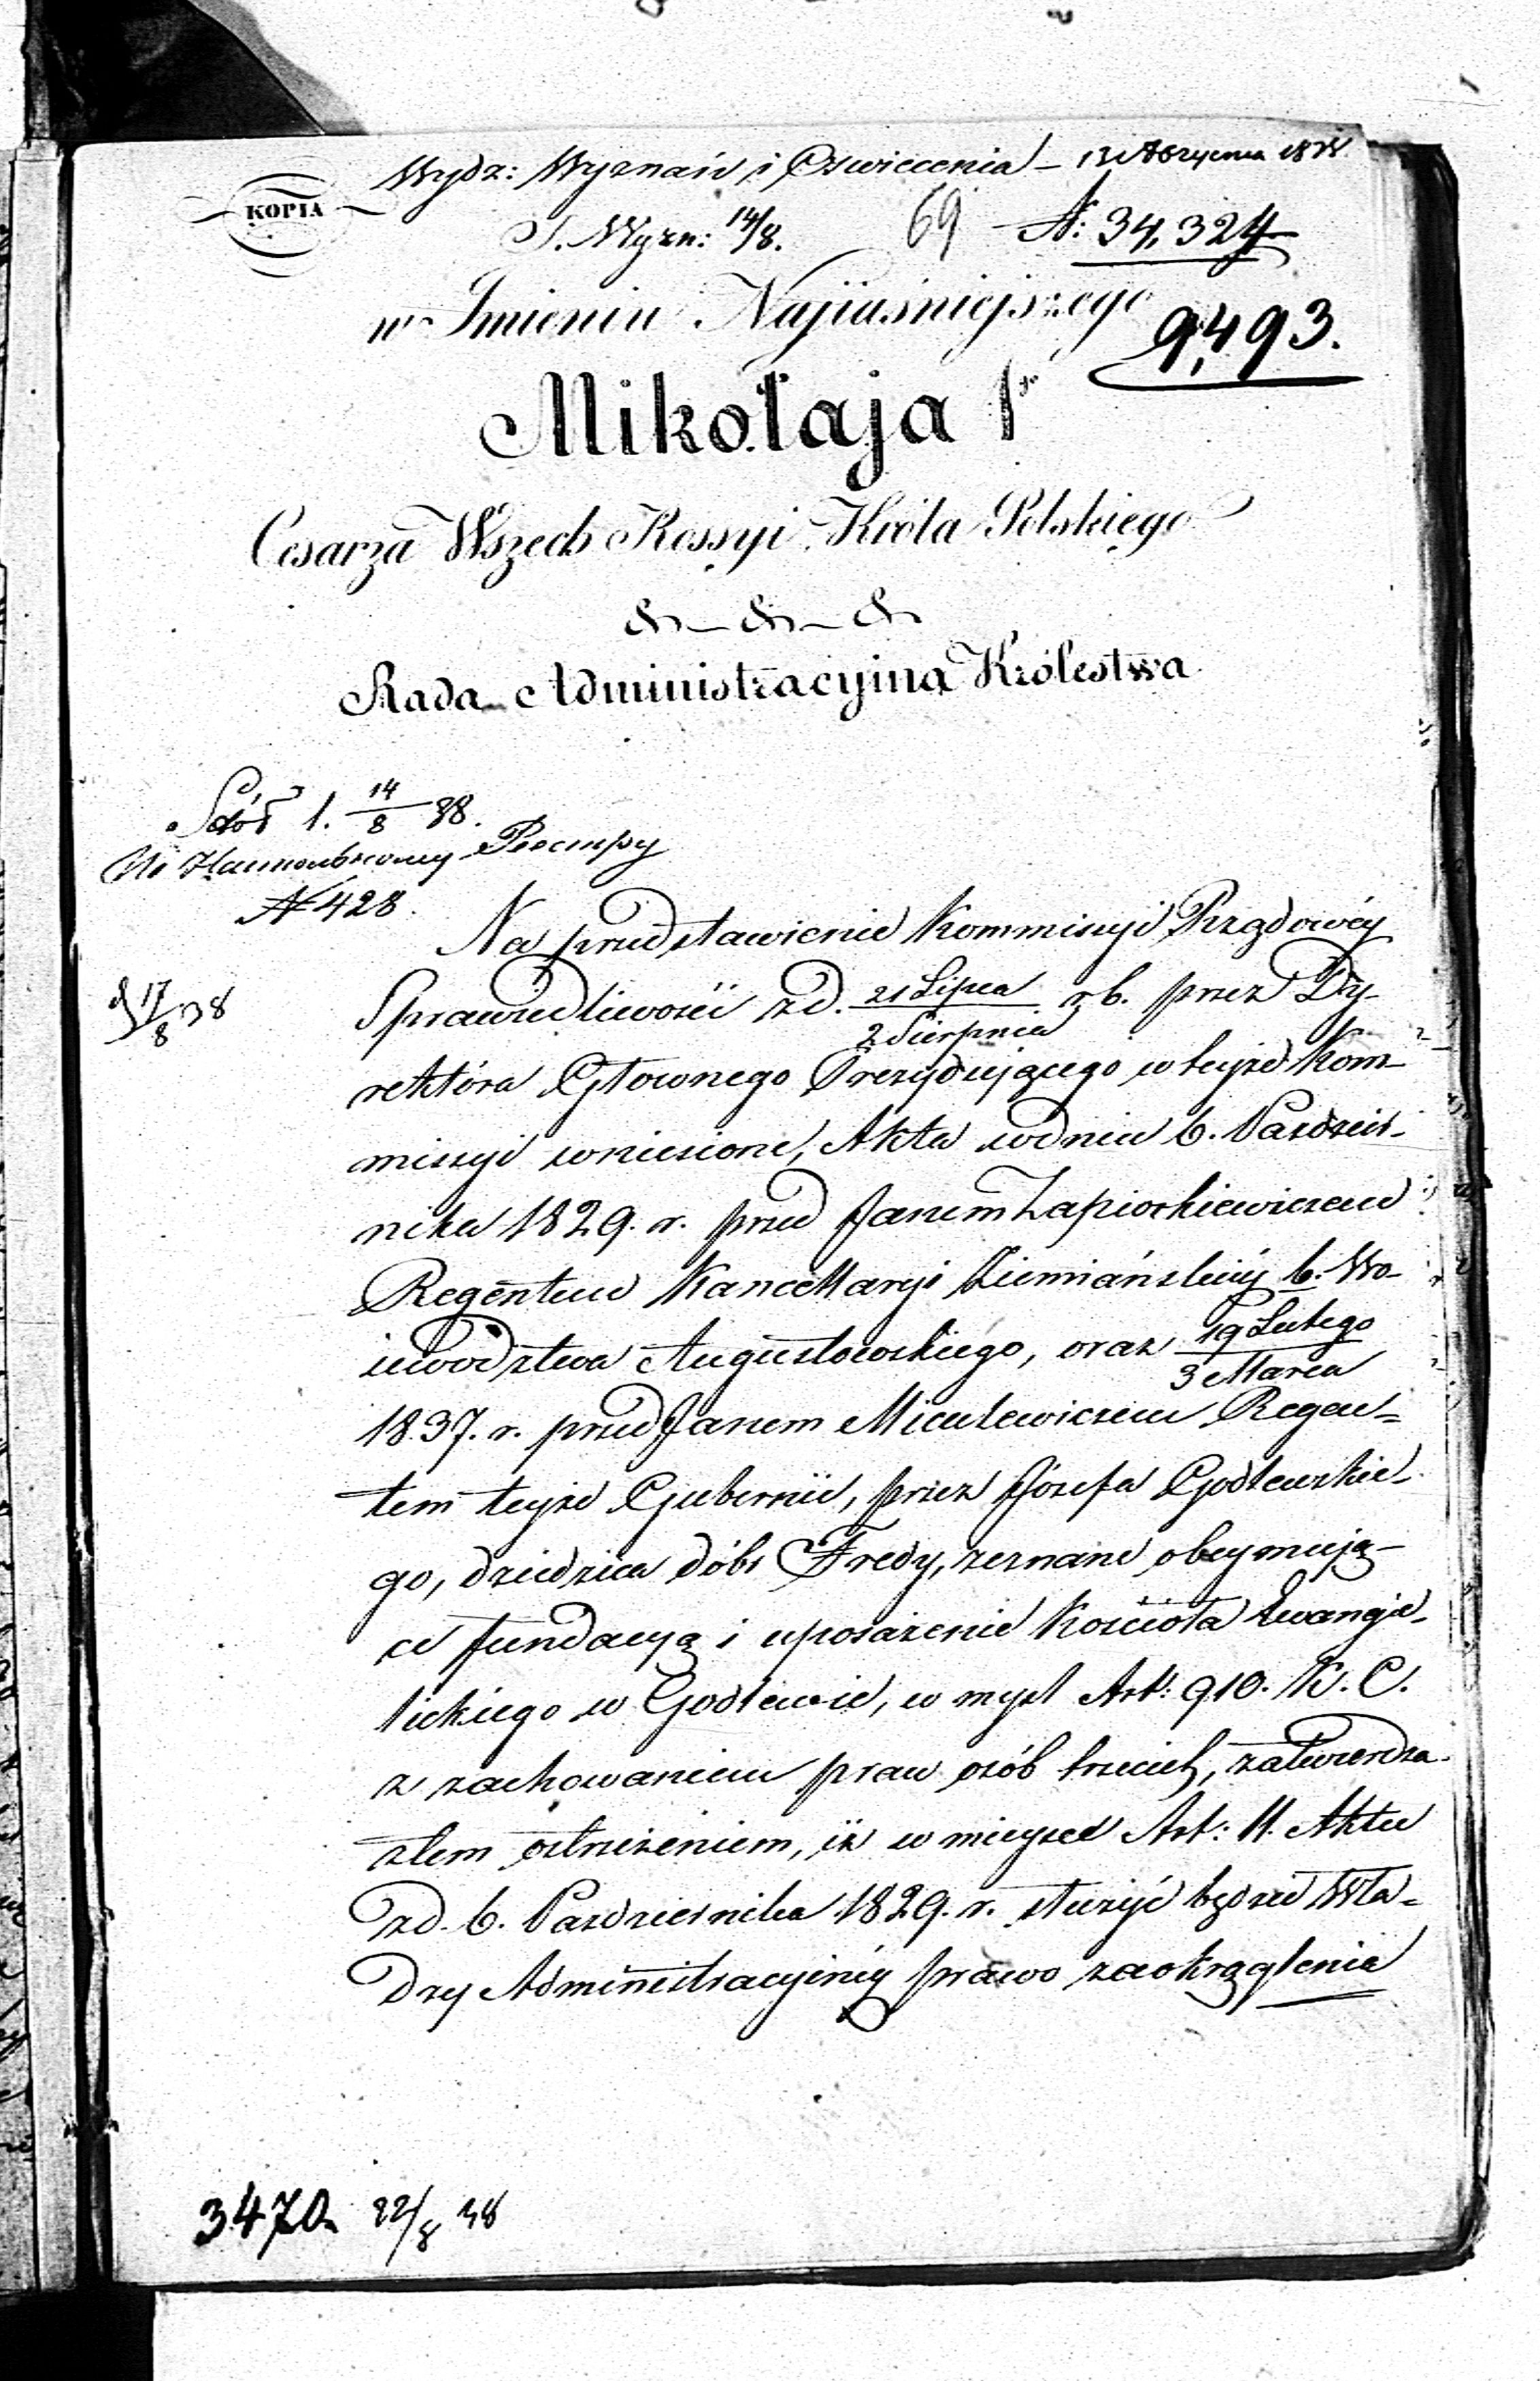 KOPIA
Wydz: Wyznań i Oświecenia – 13
S. Wyzn: 14/8. 69 N: 34,324
w Imieniu Najiaśniejszego
9,493.
Mikołaja I
Cesarza Wszech Rossyi Króla Polskiego
&-&-&
Rada Administracyina Królestwa
1. 14/8 38.
N 428.
17/8 38
Na przedstawienie Kommissyi Rządowéy
Sprawiedliwości z d. 21 Lipca / 2 Sierpnia r b. przez Dy-
rektora Głownego Prezyduiącego w teyże Kom-
missyi wniesione, Akta w dniu 6. Paździer-
nika 1829. r. przed Janem Zapiorkiewiczem
Regentem Kancellaryi Ziemiańskiéy b. Wo-
iewodztwa Augustowskiego, oraz 19 Lutego / 3 Marca
1837. r. przed Janem Miculewiczem Regen-
tem teyże Gubernii, przez Józefa Godlewskie-
go, dziedzica dóbr Fredy, zeznane obeymują-
ce fundacyą i uposażenie Kościoła Ewangie-
lickiego w Godlewie, w mysl Art: 910. K. C.
z zachowaniem praw osób trzecich, zatwierdza
z tem ostrzeżeniem, iż w mieysce Art: 11. Aktu
z d. 6. Października 1829. r. służyć będzie Wła-
dzy Administracyinéy prawo zaokrąglenia
3470. 22/8 38